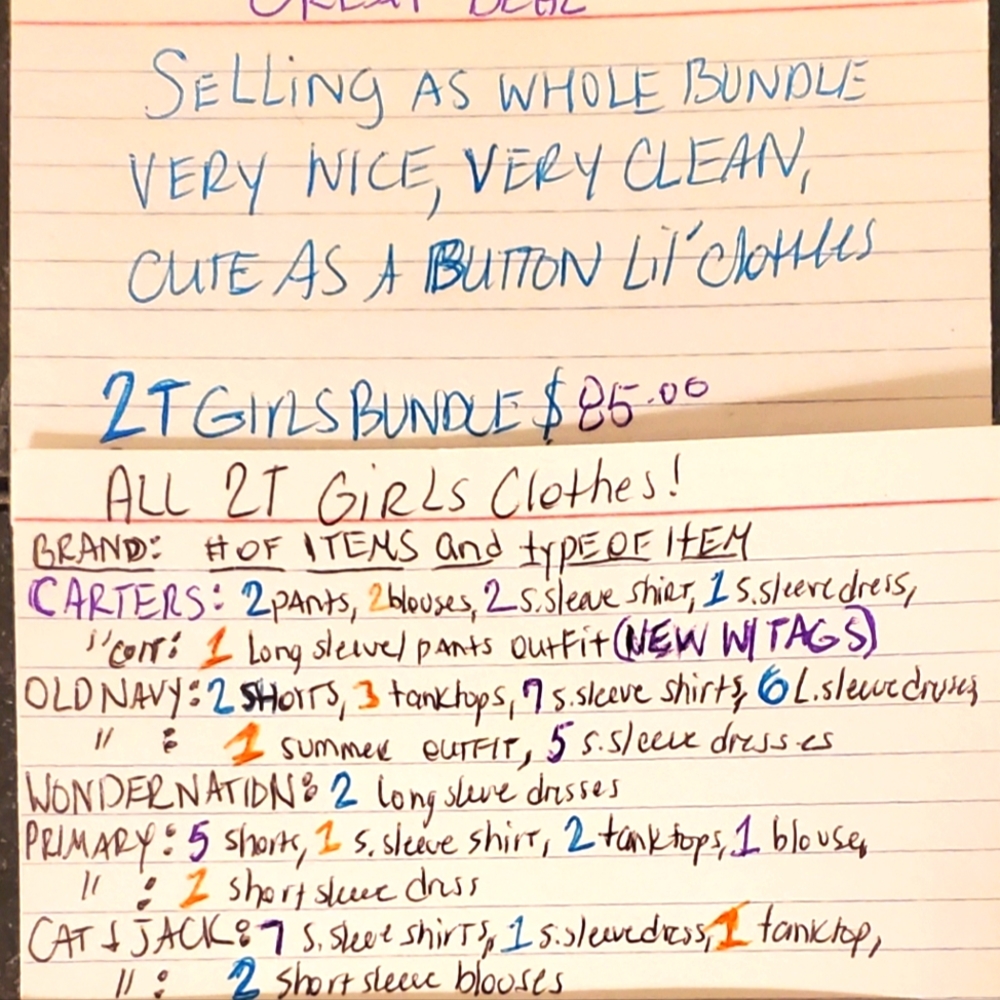 GREAT DEAL
SELLiNG AS WHOLE BUNDLE
VERY NICE, VERY CLEAN,
CUTE AS A BUTTON Lil' clothes
2T GIRLS BUNDLE $ 85.00
ALL 2T GiRLS Clothes!
BRAND: # OF ITEMS and typE OF ItEM
CARTERS: 2 pANts, 2 blouses, 2 s.sleeve shirt, 1 s.sleeve dress,
" con't: 1 Long sleeve/pANts outFit (NEW W/TAGS)
OLD NAVY: 2 SHORTS, 3 tanktops, 7 s.sleeve shirts, 6 L.sleeve dresses,
" : 1 summer OUTFIT, 5 s.sleeve dresses
WONDERNATION: 2 long sleeve dresses
PRIMARY: 5 shorts, 1 s.sleeve shirt, 2 tanktops, 1 blouse,
" : 2 short sleeve dress
CAT & JACK: 7 s.sleeve shirts, 1 s.sleeve dress, 1 tanktop,
" : 2 short sleeve blouses